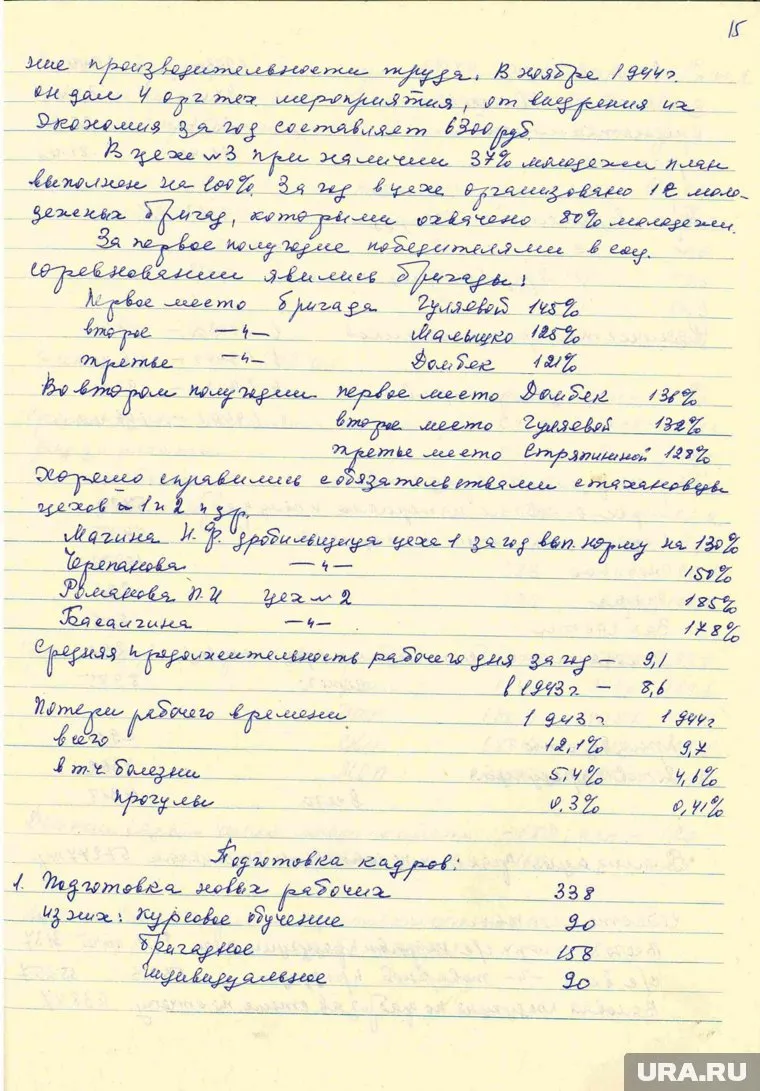 15
ние производительности труда. В ноябре 1944г.
он дал 4 орг.тех. мероприятия, от внедрения их
экономия за год составляет 6300 руб.
В цехе №3 при наличии 37% молодежи план
выполнен на 100%. За год в цехе организовано 12 моло-
дежных бригад, которыми охвачено 80% молодежи.
За первое полугодие победителями в соц.
соревновании явились бригады:
Первое место бригада Гуляевой 145%
второе —"— Малышко 125%
третье —"— Домбек 121%
Во втором полугодии первое место Домбек 136%
второе место Гуляевой 132%
третье место Стряпининой 128%
Хорошо справились с обязательствами стахановцы
цехов №1 и 2 и др.
Мачина Н.Ф. дробильщица цеха 1 за год вып. норму на 130%
Черепанова —"— 150%
Романова П.И цех №2 185%
Басалгина —"— 178%
Средняя продолжительность рабочего дня за год — 9,1
в 1943г — 8,6
Потери рабочего времени 1943г 1944г
всего 12,1% 9,7
в т.ч. болезни 5,4% 4,6%
прогулы 0,3% 0,41%
Подготовка кадров:
1. Подготовка новых рабочих 338
из них: Курсовое обучение 90
бригадное 158
индивидуальное 90
URA.RU